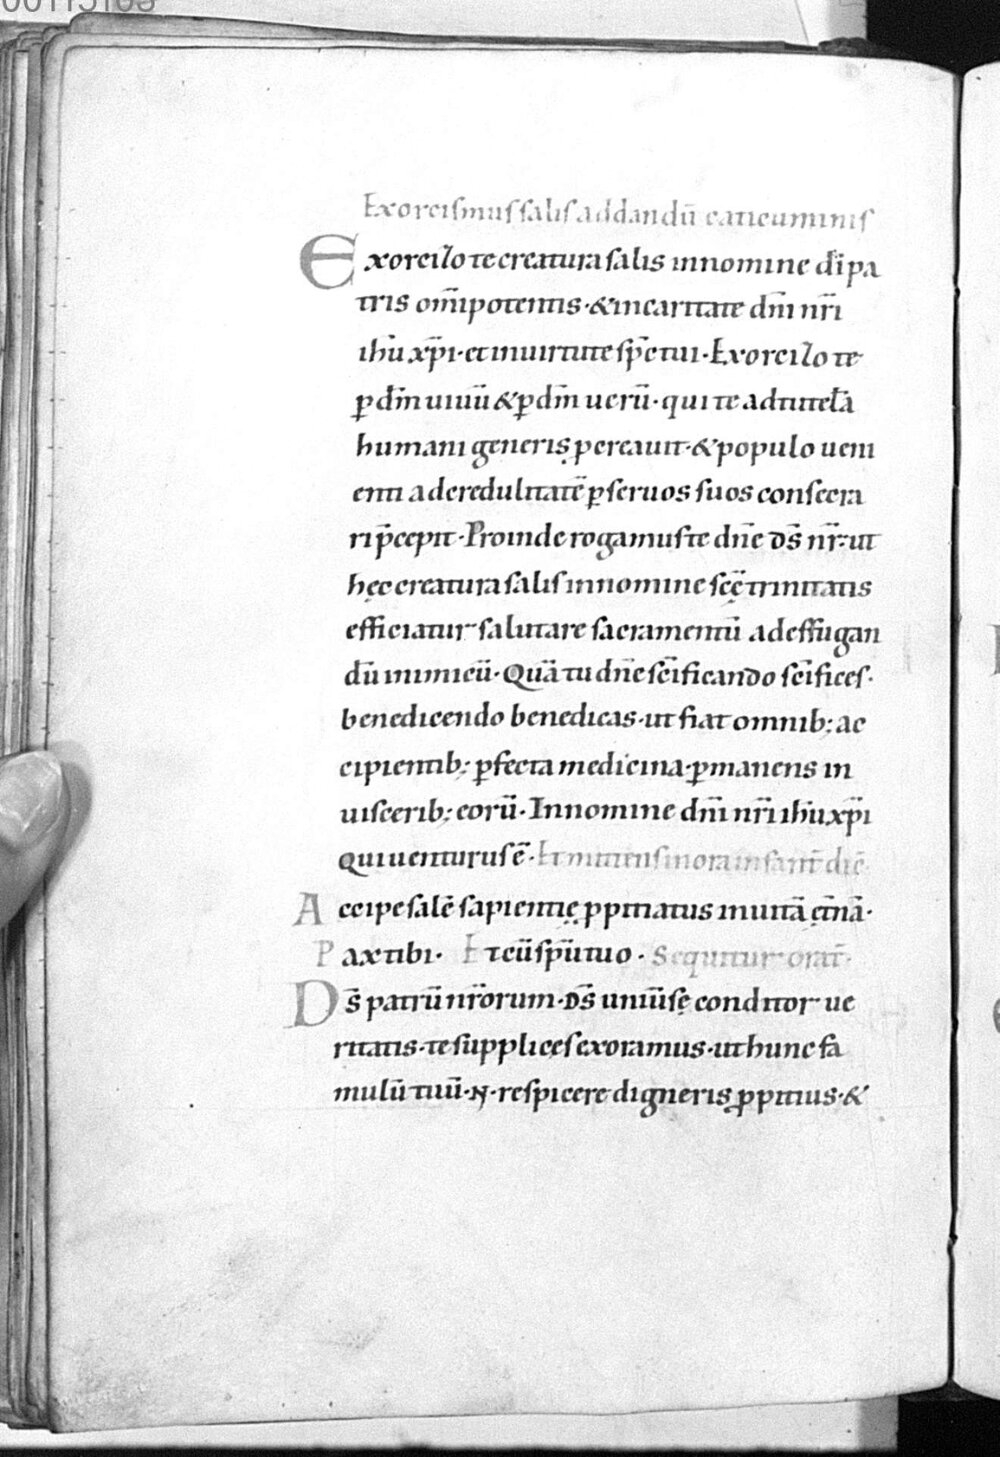 00113103
Exorcismus salis ad dandū caticuminis
Exorcizo te creatura salis in nomine dī pa
tris om̄ipotentis · & in caritate dn̄i nr̄i
ihū xp̄i · et in uirtute sp̄c tui · Exorcizo te
p̱ dm̄ uiuū & p̱ dm̄ uerū · qui te ad tutelā
humani generis p̱creauit · & populo ueni
enti ad credulitatē p̱ seruos suos consecra
ri p̄cepit · Proinde rogamus te dn̄e ds̄ nr̄ · ut
hęc creatura salis in nomine scę̄ trinitatis
efficiatur salutare sacramentū ad effugan
dū inimicū · Quā tu dn̄e sc̄ificando sc̄ifices ·
benedicendo benedicas · ut fiat omnib; ac
cipientib; p̱fecta medicina · p̱manens in
uiscerib; eorū · In nomine dn̄i nr̄i ihū xp̄i
qui uenturus ē · Et mittens in ora infant̄ dic̄
Accipe salē sapientię p̱pitiatus in uitā ęt̄nā ·
Pax tibi · Et cū sp̄u tuo · Sequitur orat̄ ·
Ds̄ patrū nr̄orum · ds̄ uniūsę conditor ue
ritatis · te supplices exoramus · ut hunc fa
mulū tuū · N · respicere digneris p̱pitius · &